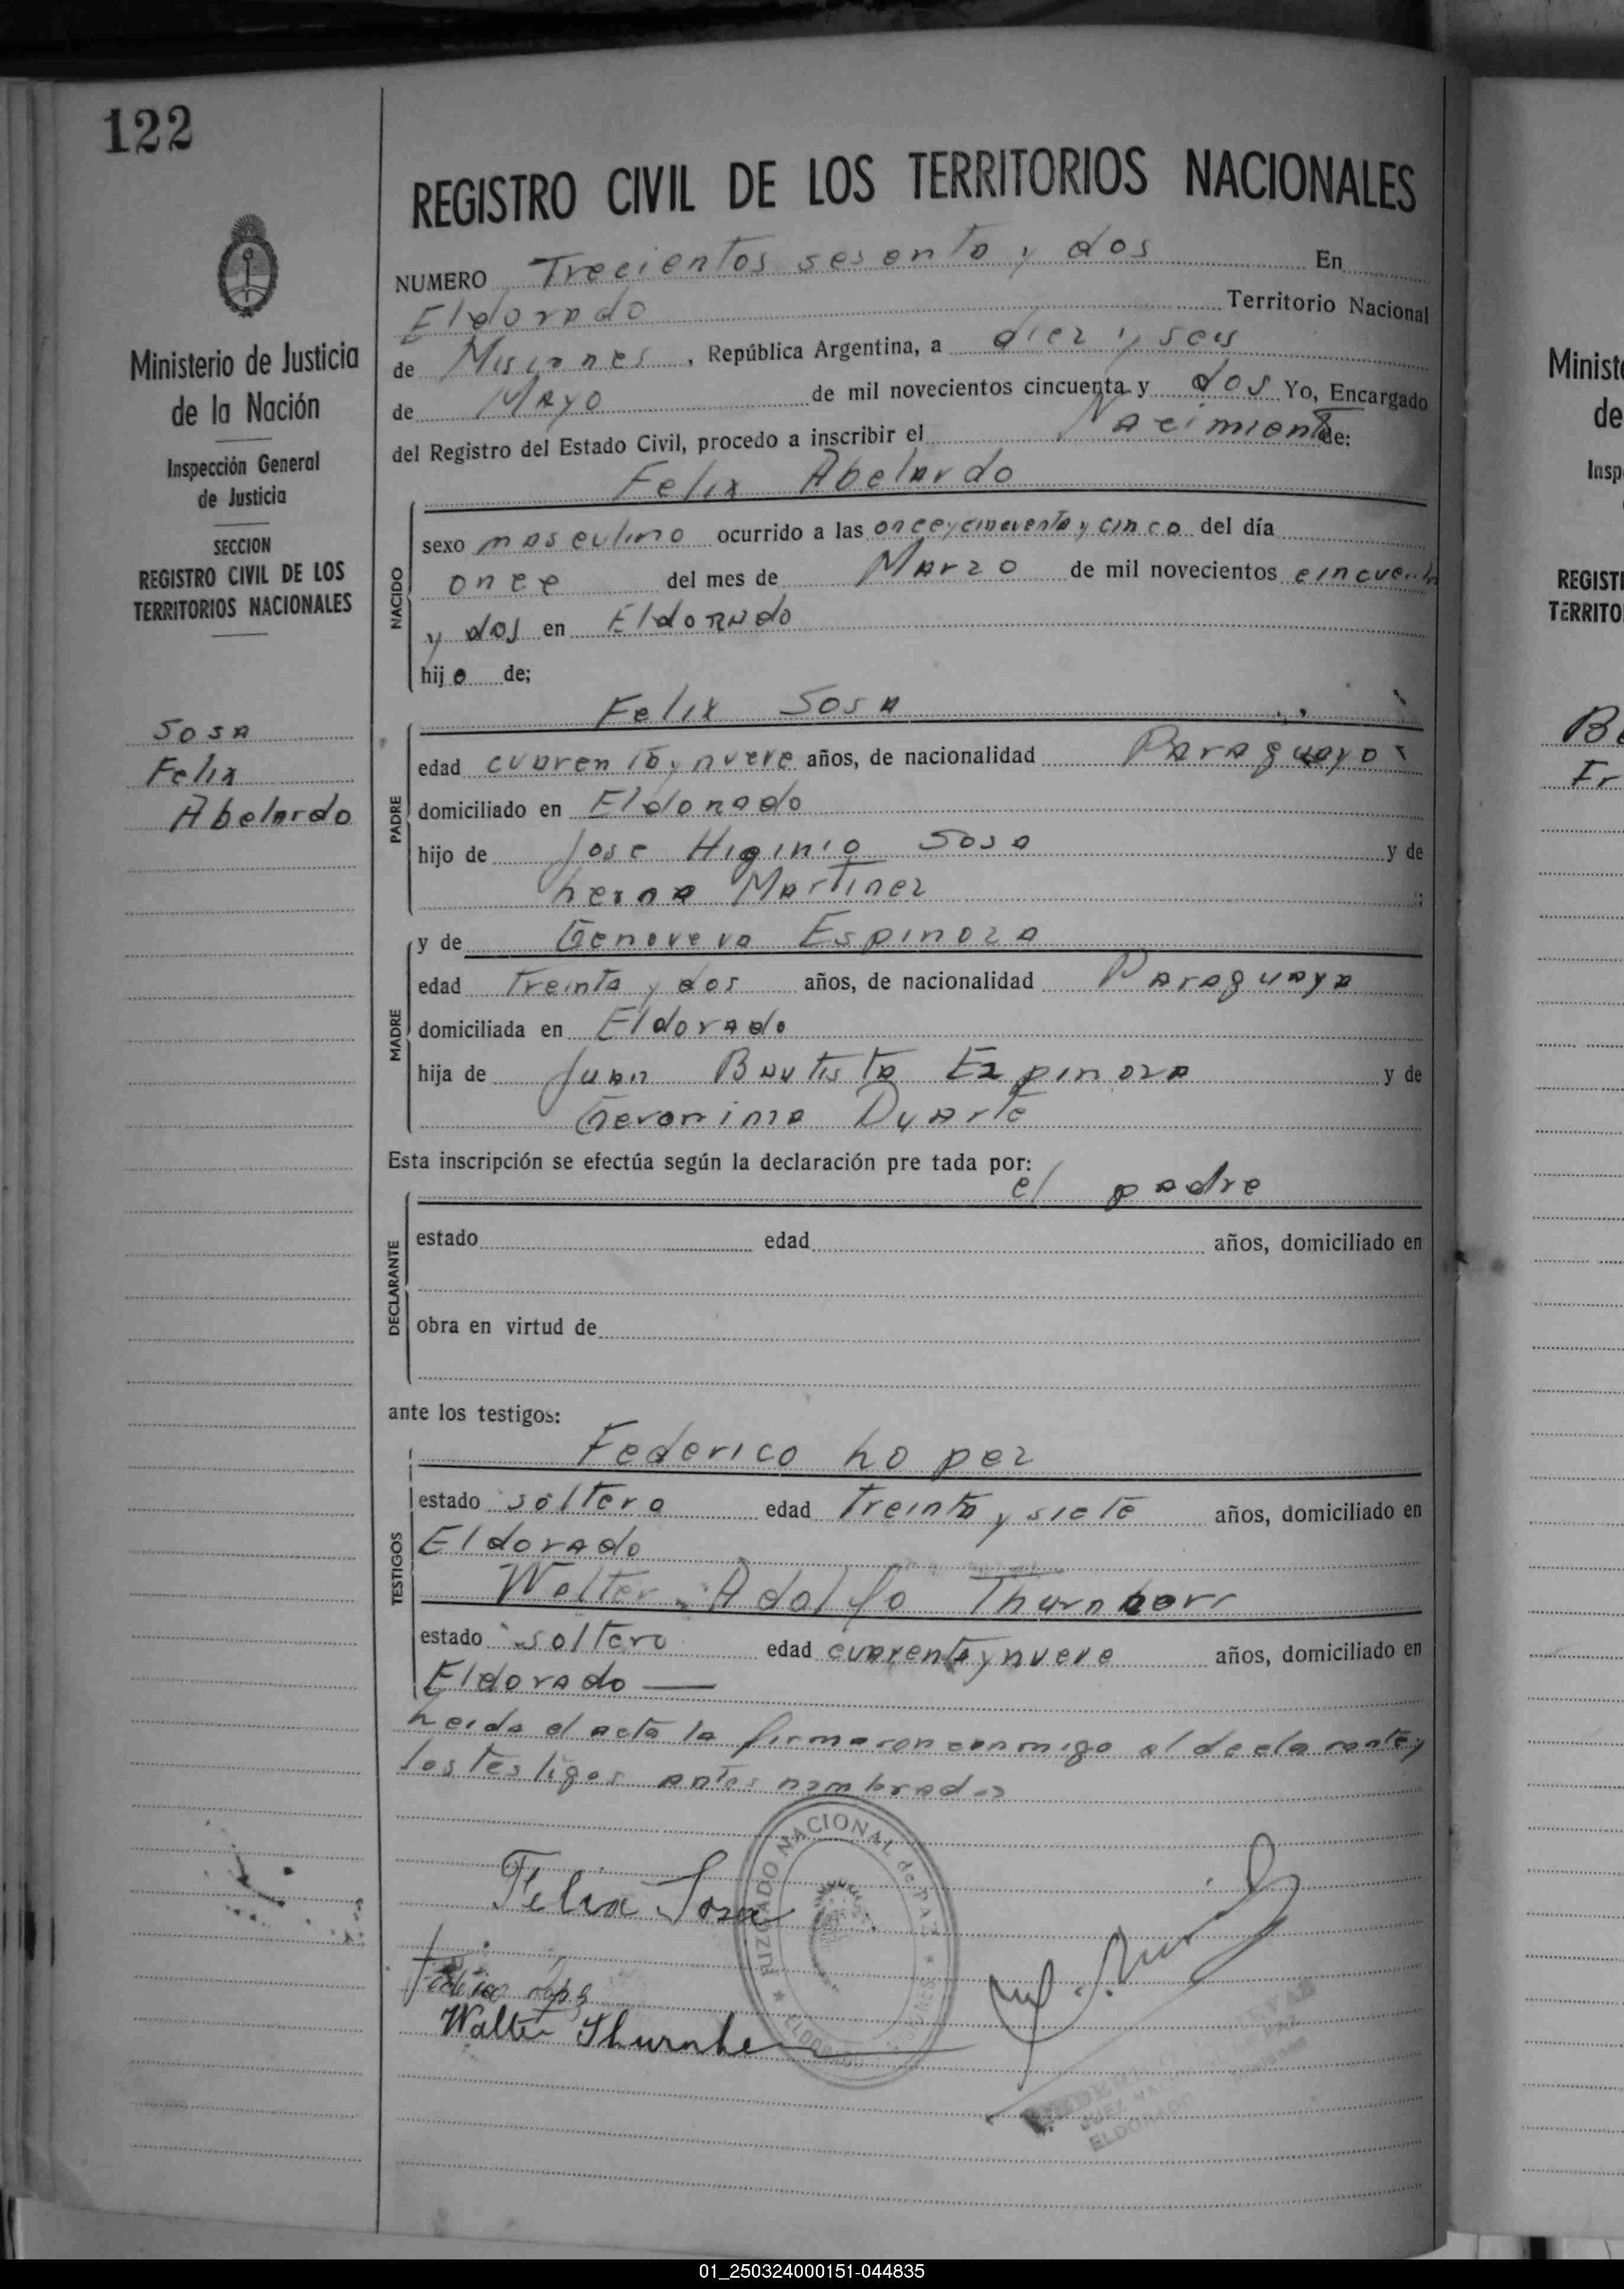 122
REGISTRO CIVIL DE LOS TERRITORIOS NACIONALES
Ministerio de Justicia
de la Nación
Inspección General
de Justicia
SECCION
REGISTRO CIVIL DE LOS
TERRITORIOS NACIONALES
Sosa
Felix
Abelardo
NUMERO Trecientos sesenta y dos En
Eldorado Territorio Nacional
de Misiones, República Argentina, a diez y seis
de Mayo de mil novecientos cincuenta y dos Yo, Encargado
del Registro del Estado Civil, procedo a inscribir el Nacimiento de:
Felix Abelardo
NACIDO
sexo masculino ocurrido a las once y cincuenta y cinco del día
once del mes de Marzo de mil novecientos cincuenta
y dos en Eldorado
hijo de;
Felix Sosa
PADRE
edad cuarenta y nueve años, de nacionalidad Paraguayo
domiciliado en Eldorado
hijo de Jose Higinio Sosa y de
Martinez
MADRE
y de Genoveva Espinoza
edad treinta y dos años, de nacionalidad Paraguaya
domiciliada en Eldorado
hija de Juan Bautista Ezpinoza y de
Geronima Duarte
Esta inscripción se efectúa según la declaración pre tada por:
el padre
DECLARANTE
estado edad años, domiciliado en
obra en virtud de
ante los testigos:
TESTIGOS
Federico Lopez
estado soltero edad treinta y siete años, domiciliado en
Eldorado
Walter Adolfo
estado soltero edad cuarenta y nueve años, domiciliado en
Eldorado
Leida el acta la firmaron conmigo el declarante y
los testigos antes nombrados
Felix Sosa
JUZGADO NACIONAL de PAZ
ELDORADO
Walter
JUEZ
ELDORADO
Minist
de
Insp
REGIST
TERRITO
01_250324000151-044835